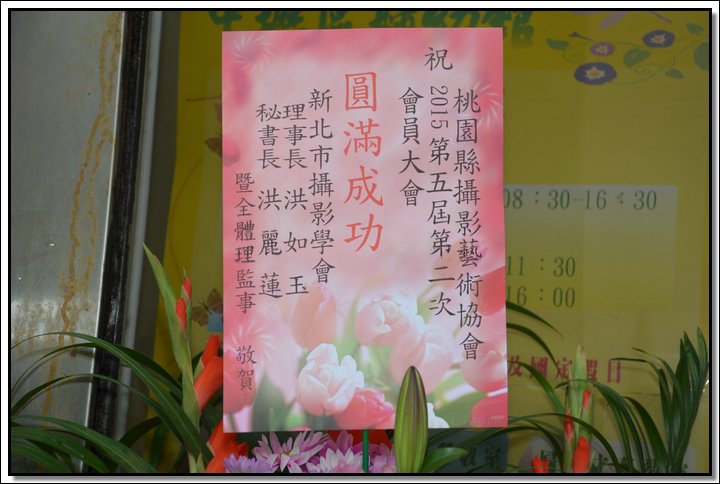 祝
桃園縣攝影藝術協會
2015第五屆第二次
會員大會
圓滿成功
新北市攝影學會
理事長 洪如玉
秘書長 洪麗蓮
暨全體理監事 敬賀
08：30-16：30
11：30
16：00
及國定假日
教室